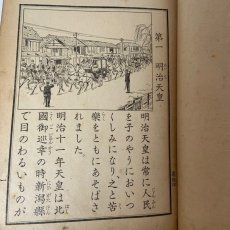 第一 明治天皇
明治天皇は常に人民
を子のやうにおいつ
くしみになり之と苦
樂をともにあそばさ
れました。
明治十一年天皇は北
國御巡幸の時新潟縣
で目のわるいものが